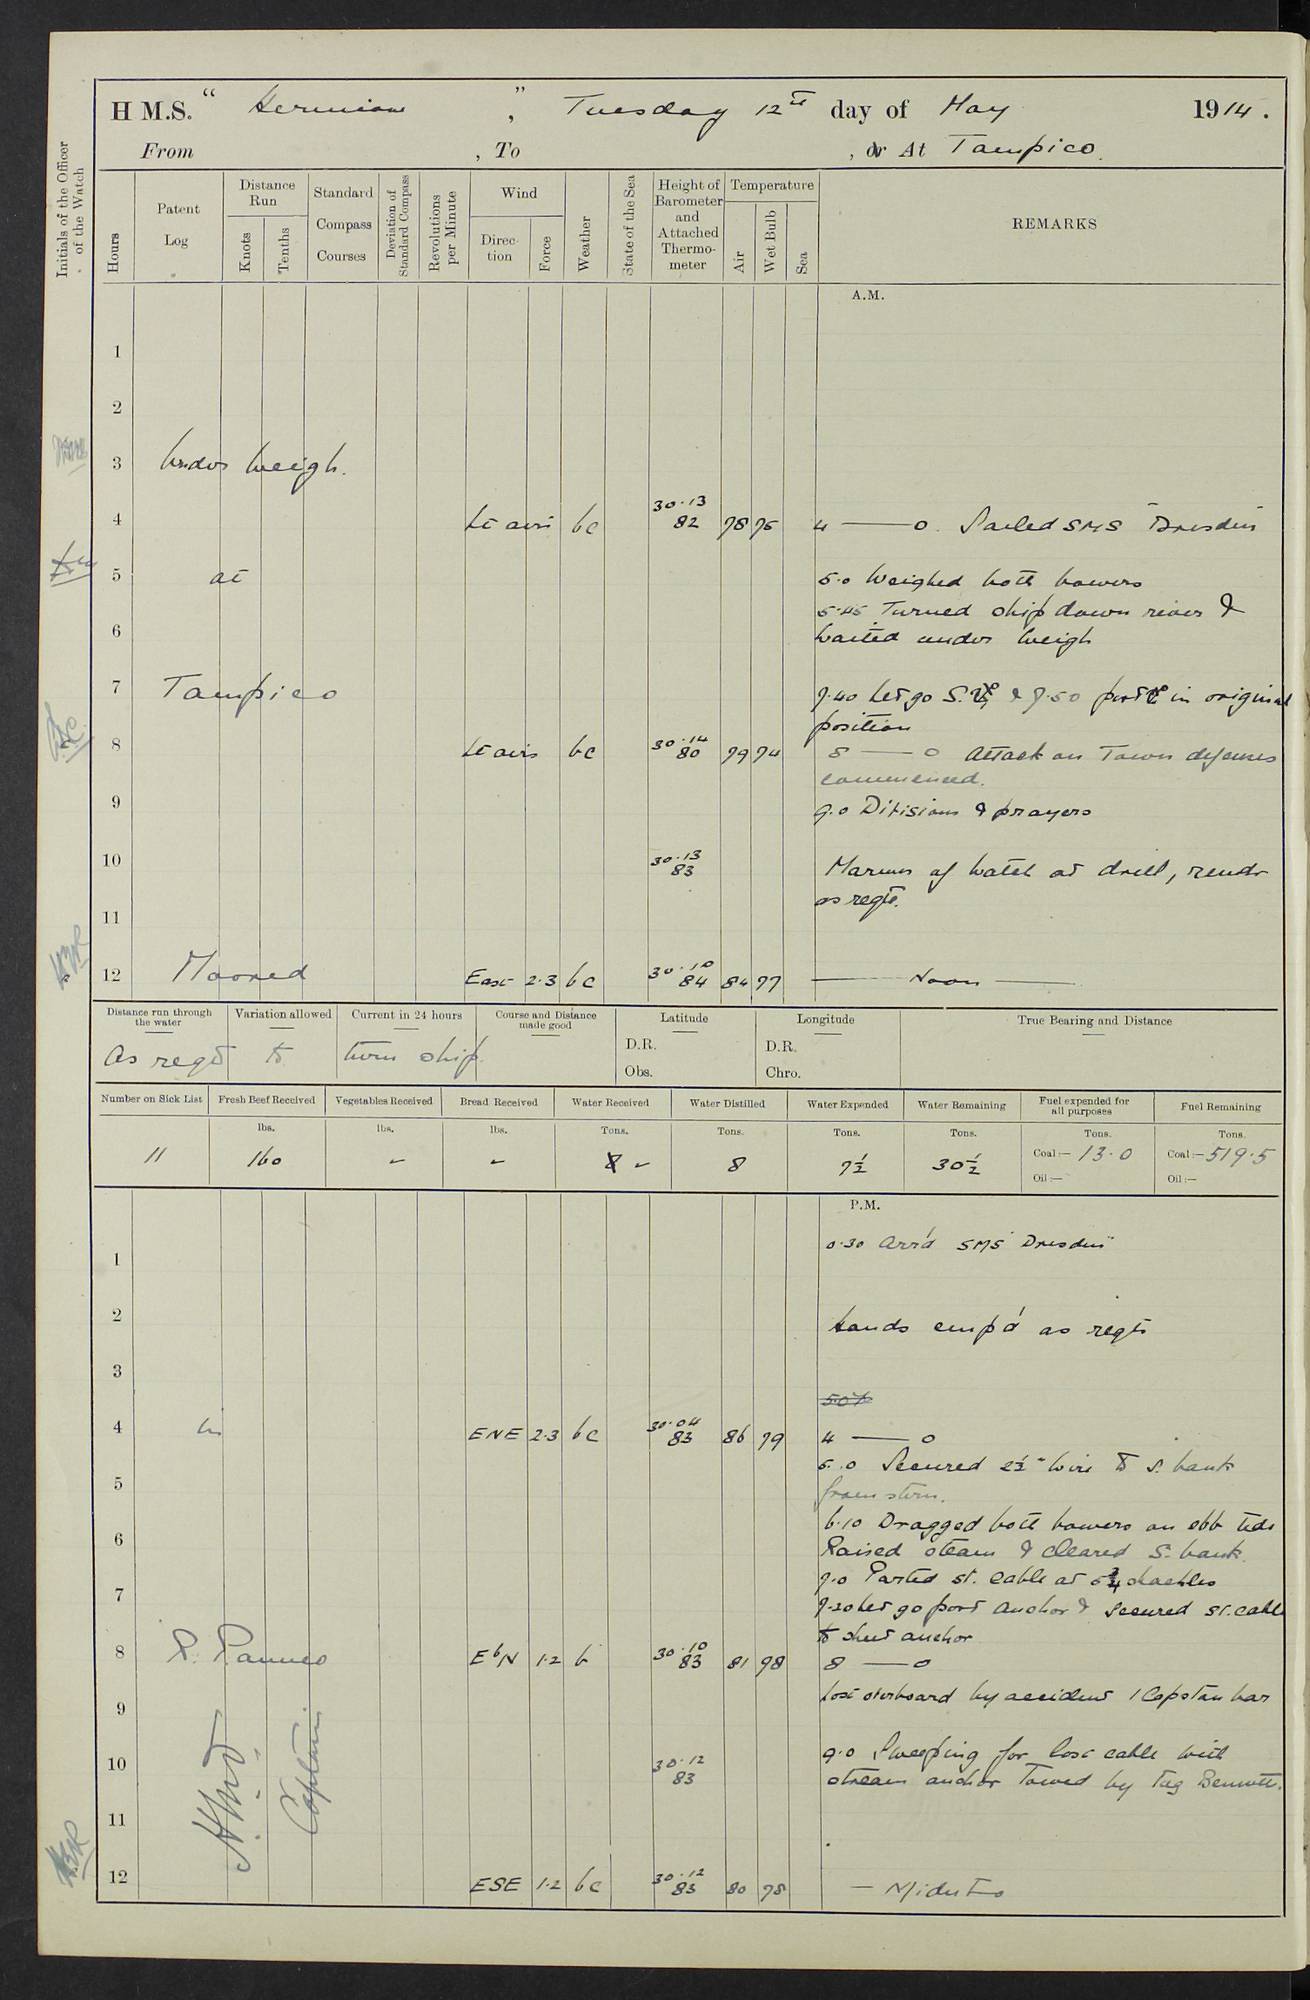 H M.S. " Hermione " , Tuesday 12th day of May 1914.
From , To , or At Tampico.
Initials of the Officer of the Watch
Hours
Patent Log
Distance Run
Knots
Tenths
Standard Compass Courses
Deviation of Standard Compass
Revolutions per Minute
Wind
Direction
Force
Weather
State of the Sea
Height of Barometer and Attached Thermometer
Temperature
Air
Wet Bulb
Sea
REMARKS
A.M.
1
2
3 Under Weigh.
4 Lt airs bc 30.13 82 78 76 4 — 0. Sailed SMS "Dresden
5 at 5.0 Weighed both bowers
5.45 Turned ship down river &
6 waited under weigh
7 Tampico 7.40 Let go S. & 7.50 port in original
position
8 Lt airs bc 30.14 80 79 74 8 — 0 Attack on Town defences
commenced.
9 9.0 Divisions & prayers
10 30.13 83 Marines of Watch at drill,
as reqd.
11
12 Moored East 2.3 bc 30.10 84 84 77 — Noon —
Distance run through the water
Variation allowed
Current in 24 hours
Course and Distance made good
Latitude
D.R.
Obs.
Longitude
D.R.
Chro.
True Bearing and Distance
As reqd to turn ship.
Number on Sick List
Fresh Beef Received
Vegetables Received
Bread Received
Water Received
Water Distilled
Water Expended
Water Remaining
Fuel expended for all purposes
Fuel Remaining
lbs. lbs. lbs. Tons. Tons. Tons. Tons. Tons. Tons.
11 160 - - 8 - 8 7½ 30½ Coal:— 13.0 Coal:— 519.5
Oil:— Oil:—
P.M.
0.30 Arr'd SMS "Dresden"
1
2 Hands emp'd as reqd
3
4 in ENE 2.3 bc 30.04 83 86 79 4 — 0
5.0 Secured 2½" wire to S. bank
5 from stern.
6.10 Dragged both bowers on ebb tide
6 Raised steam & cleared S. bank.
7.0 Parted st. cable at 5¾ shackles
7 7.20 Let go port anchor & secured st. cable
to sheet anchor
8 R. Panuco E b N 1.2 b 30.10 83 81 78 8 — 0
Lost overboard by accident 1 Capstan bar
9
9.0 Sweeping for lost cable with
10 30.12 83 stream anchor Towed by tug Bennett.
Captain
11
12 ESE 1.2 bc 30.12 83 80 78 — Midnt —